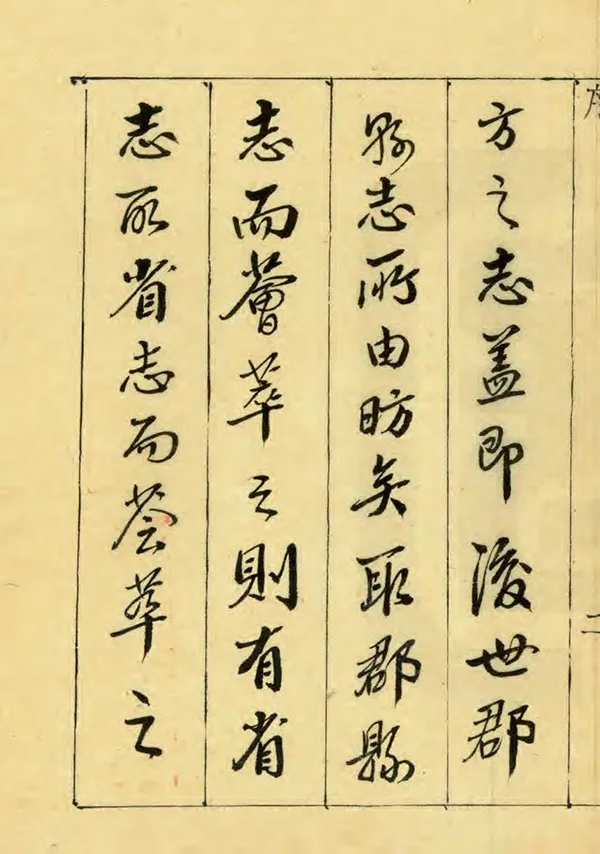 方之志盖即後世郡
縣志所由昉矣取郡縣
志而薈萃之則有省
志取省志而荟萃之